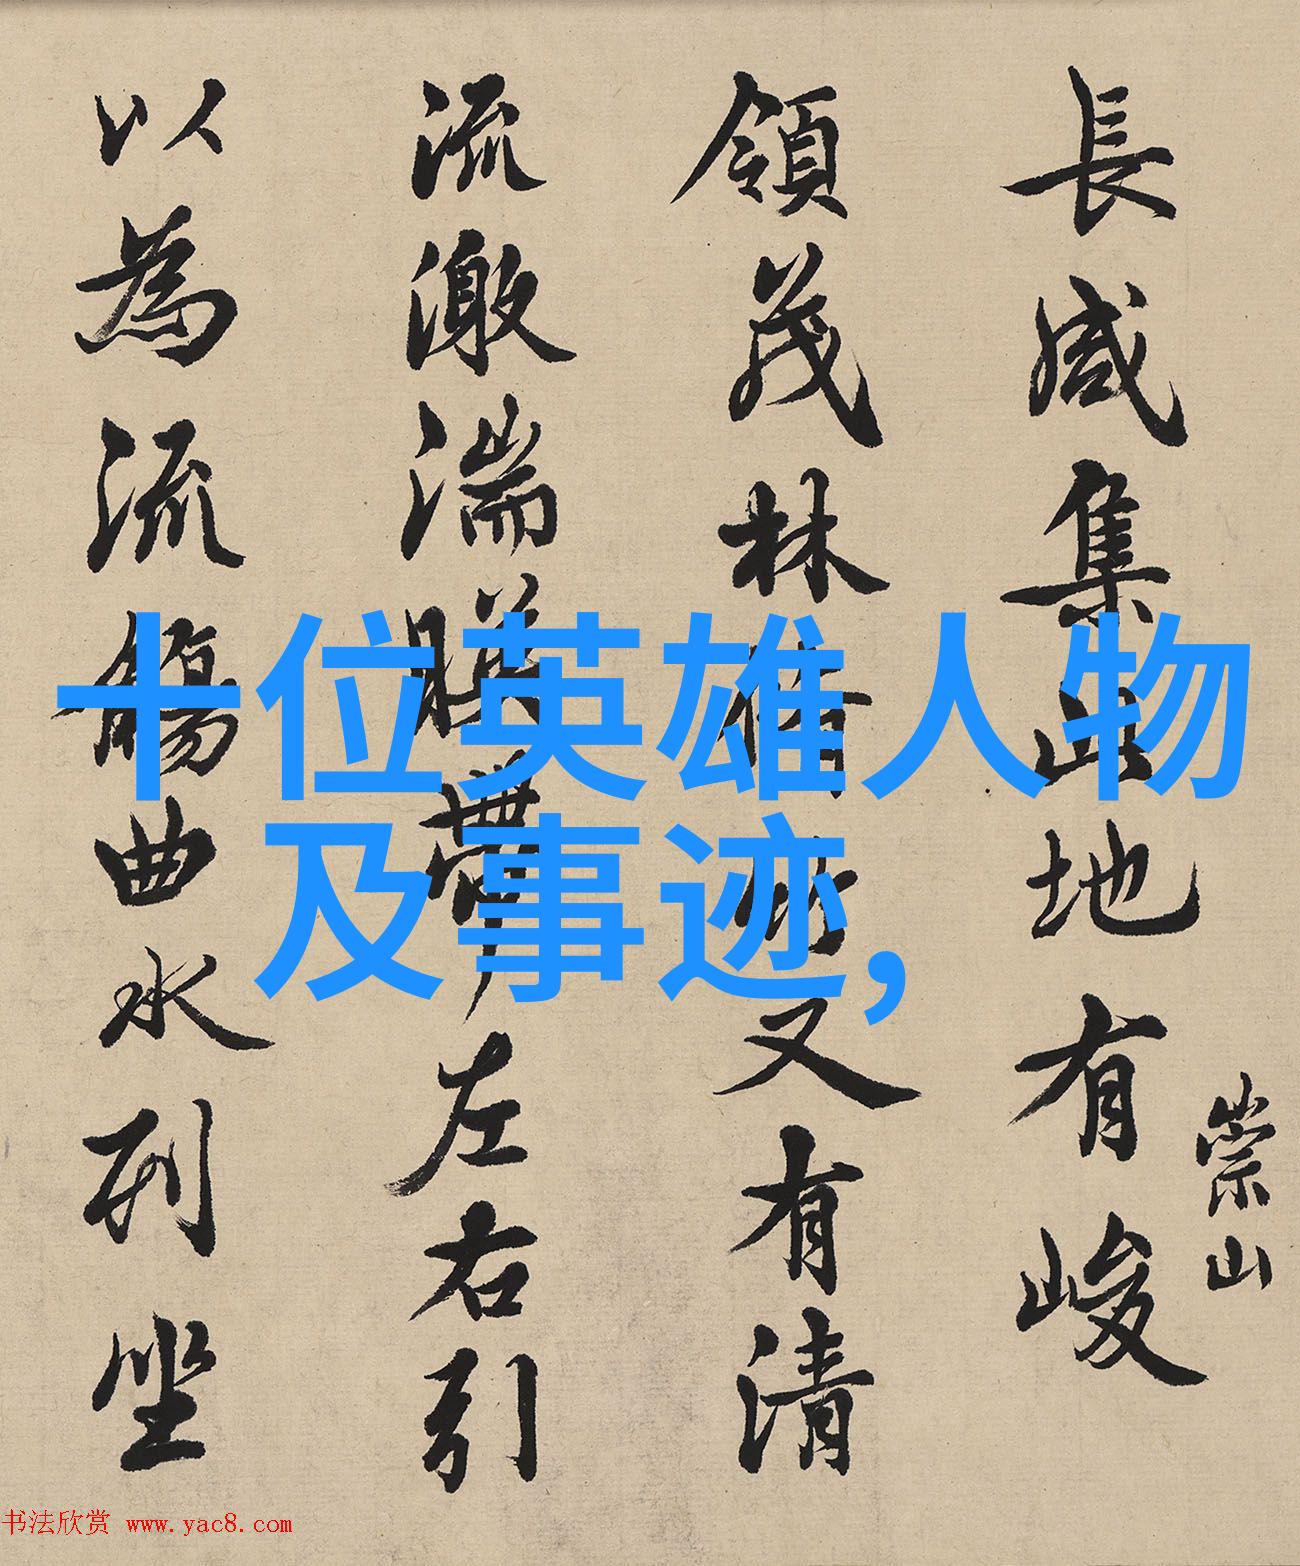 長咸集此地有峻
領茂林脩竹又有清
流激湍暎帶左右引
以為流觴曲水列坐
崇山
十位英雄人物
及事迹,
书法欣赏 www.yac8.com